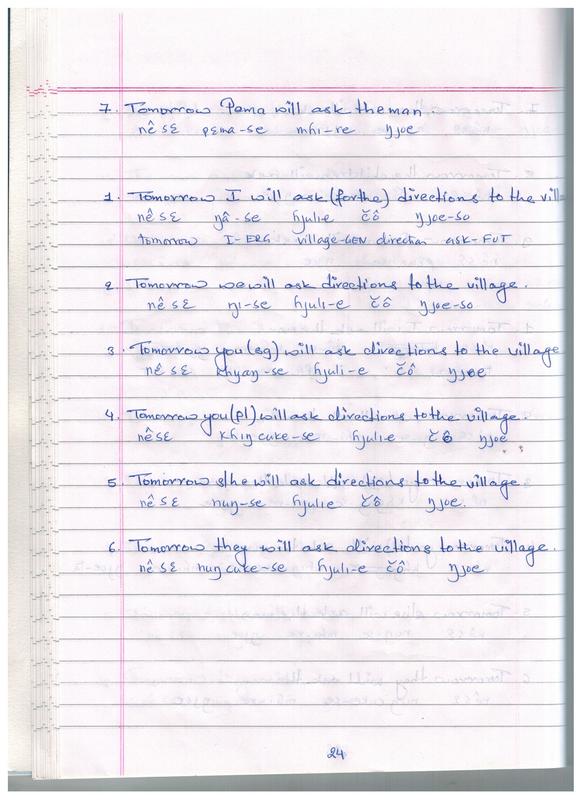 7. Tomorrow Pema will ask the man.
nê sɛ pɛma-se mɦi-re ŋjoe
1. Tomorrow I will ask (for the) directions to the vill
nê sɛ ŋâ-se ɦjuli-e čô ŋjoe-so
tomorrow I-ERG village-GEN direction ask-FUT
2. Tomorrow we will ask directions to the village.
nê sɛ ŋi-se ɦjuli-e čô ŋjoe-so
3. Tomorrow you (sg) will ask directions to the village
nê sɛ khyaŋ-se ɦjuli-e čô ŋjoe
4. Tomorrow you (pl) will ask directions to the village.
nê sɛ khiŋ cuke-se ɦjuli-e čô ŋjoe
5. Tomorrow s/he will ask directions to the village
nê sɛ nuŋ-se ɦjuli-e čô ŋjoe.
6. Tomorrow they will ask directions to the village.
nê sɛ nuŋ cuke-se ɦjuli-e čô ŋjoe
24